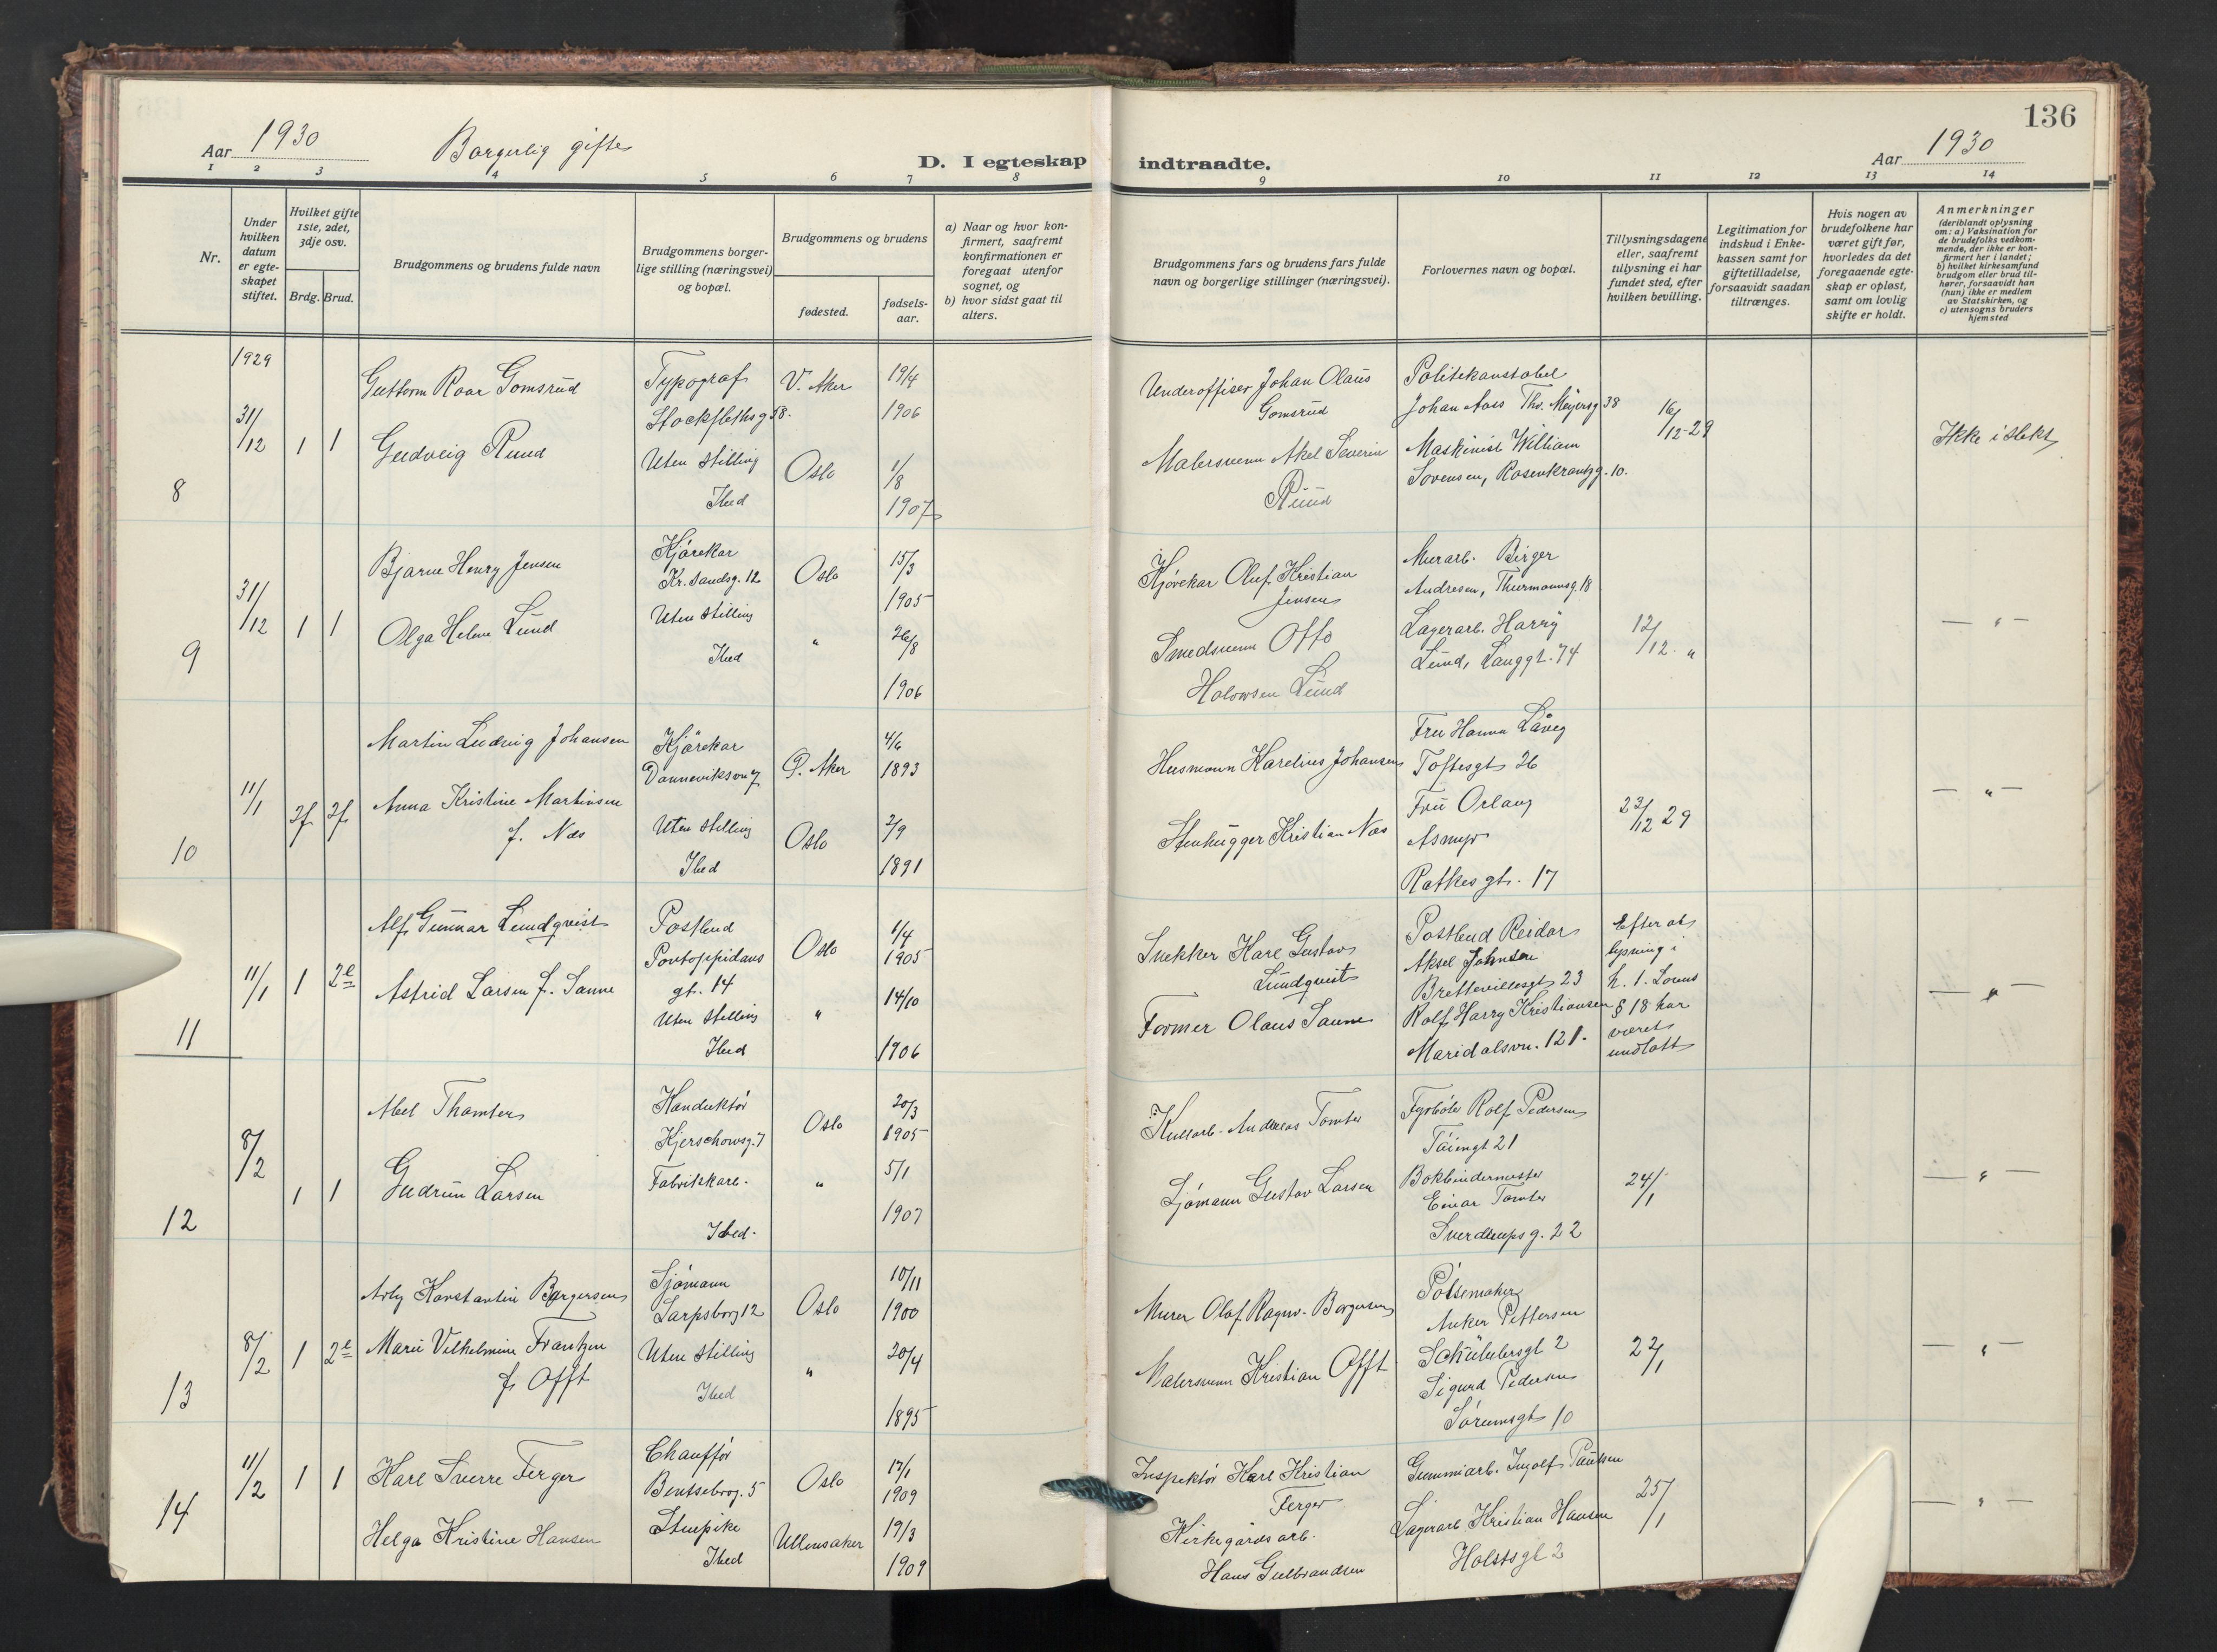 136
Aar 1930
Borgerlig gifte
D. I egteskap indtraadte.
Aar 1930
1 2 3 4 5 6 7 8 9 10 11 12 13 14
Nr.
Under hvilken datum er egteskapet stiftet.
Hvilket gifte 1ste, 2det, 3dje osv.
Brdg. Brud.
Brudgommens og brudens fulde navn
Brudgommens borgerlige stilling (næringsvei) og bopæl.
Brudgommens og brudens
fødested.
fødselsaar.
a) Naar og hvor konfirmert, saafremt konfirmationen er foregaat utenfor sognet, og
b) hvor sidst gaat til alters.
Brudgommens fars og brudens fars fulde navn og borgerlige stillinger (næringsvei).
Forlovernes navn og bopæl.
Tillysningsdagene eller, saafremt tillysning ei har fundet sted, efter hvilken bevilling.
Legitimation for indskud i Enkekassen samt for giftetilladelse, forsaavidt saadan tiltrænges.
Hvis nogen av brudefolkene har været gift før, hvorledes da det foregaaende egteskap er opløst, samt om lovlig skifte er holdt.
Anmerkninger
(deriblandt oplysning om: a) Vaksination for de brudefolks vedkommende, der ikke er konfirmert her i landet;
b) hvilket kirkesamfund brudgom eller brud tilhører, forsaavidt han (hun) ikke er medlem av Statskirken, og
c) utensogns bruders hjemsted
8
1929
31/12
1 1
Guttorm Roar Gomsrud
Gudveig Ruud
Typograf
Stockflethsg 58.
Uten stilling
Ibid
V. Aker
Oslo
19/4
1906
1/8
1907
Underoffiser Johan Olaus
Gomsrud
Malersvenn Aksel Severin
Ruud
Politikonstabel
Johan Aass Thv. Meyersg 38
Maskinist William
Sorensen, Rosenkrantzg. 10.
16/12-29
Ikke i slekt
9
31/12
1 1
Bjarne Henry Jensen
Olga Helene Lund
Kjørekar
Kr.sandsg. 12
Uten stilling
Ibid
Oslo
"
15/3
1905
26/8
1906
Kjørekar Oluf Kristian
Jensen
Smedsvenn Otto
Halvorsen Lund
Murarb. Birger
Andresen, Thurmannsg. 18
Lagerarb. Harry
Lund, Langgt. 74
12/12. "
— " —
10
11/1
2f 2f
Martin Ludvig Johansen
Anna Kristine Martinsen
f. Næs
Kjørekar
Danneviksvn 7
Uten stilling
Ibid
Ø. Aker
Oslo
4/6
1893
2/9
1891
Husmann Karelius Johansen
Stenhugger Kristian Næs
Fru Hanna Låveg
Toftesgt 26
Fru Orlaug
Asmyr
Ratkesgt. 17
23/12 29
— " —
11
11/1
1 2e
Alf Gunnar Lundqvist
Astrid Larsen f. Sanne
Postbud
Pontoppidans
gt. 14
Uten stilling
Ibid
Oslo
"
1/4
1905
14/10
1906
Snekker Karl Gustav
Lundqvist
Former Olaus Sanne
Postbud Reidar
Aksel Johnsen
Brettevillesgt 23
Rolf Harry Kristiansen
Maridalsvn. 121.
Efter at
lysning i
h. t. Lovens
§ 18 har
været
undlatt
— " —
12
8/2
1 1
Abel Thomter
Gudrun Larsen
Konduktør
Kjerschowsg. 7
Fabrikkarb.
Ibid.
Oslo
"
20/3
1905
5/1
1907
Kullarb. Andreas Tomter
Sjømann Gustav Larsen
Fyrbøter Rolf Pedersen
Tøiengt 21
Bokbindermester
Einar Tomter
Sverdrupsg. 22
24/1
— " —
13
8/2
1 2e
Arly Konstantin Borgersen
Marie Vilhelmine Frantzen
f. Offt
Sjømann
Sarpsborg 12
Uten stilling
Ibid
Oslo
"
10/11
1900
20/4
1895
Murer Olaf Ragnv. Borgersen
Malersvenn Kristian Offt
Pølsemaker
Anker Pettersen
Schübelersgt 2
Sigurd Pedersen
Sørumsgt 10
22/1
— " —
14
11/2
1 1
Karl Sverre Ferger
Helga Kristine Hansen
Chauffør
Bentsebrog. 5
Stuepike
Ibid
Oslo
Ullensaker
17/1
1909
19/3
1909
Inspektør Karl Kristian
Ferger
Kirkegårdsarb.
Hans Gulbrandsen
Gummiarb. Ingolf Paulsen
Lagerarb Kristian Hansen
Holstsgt 2
25/1
— " —